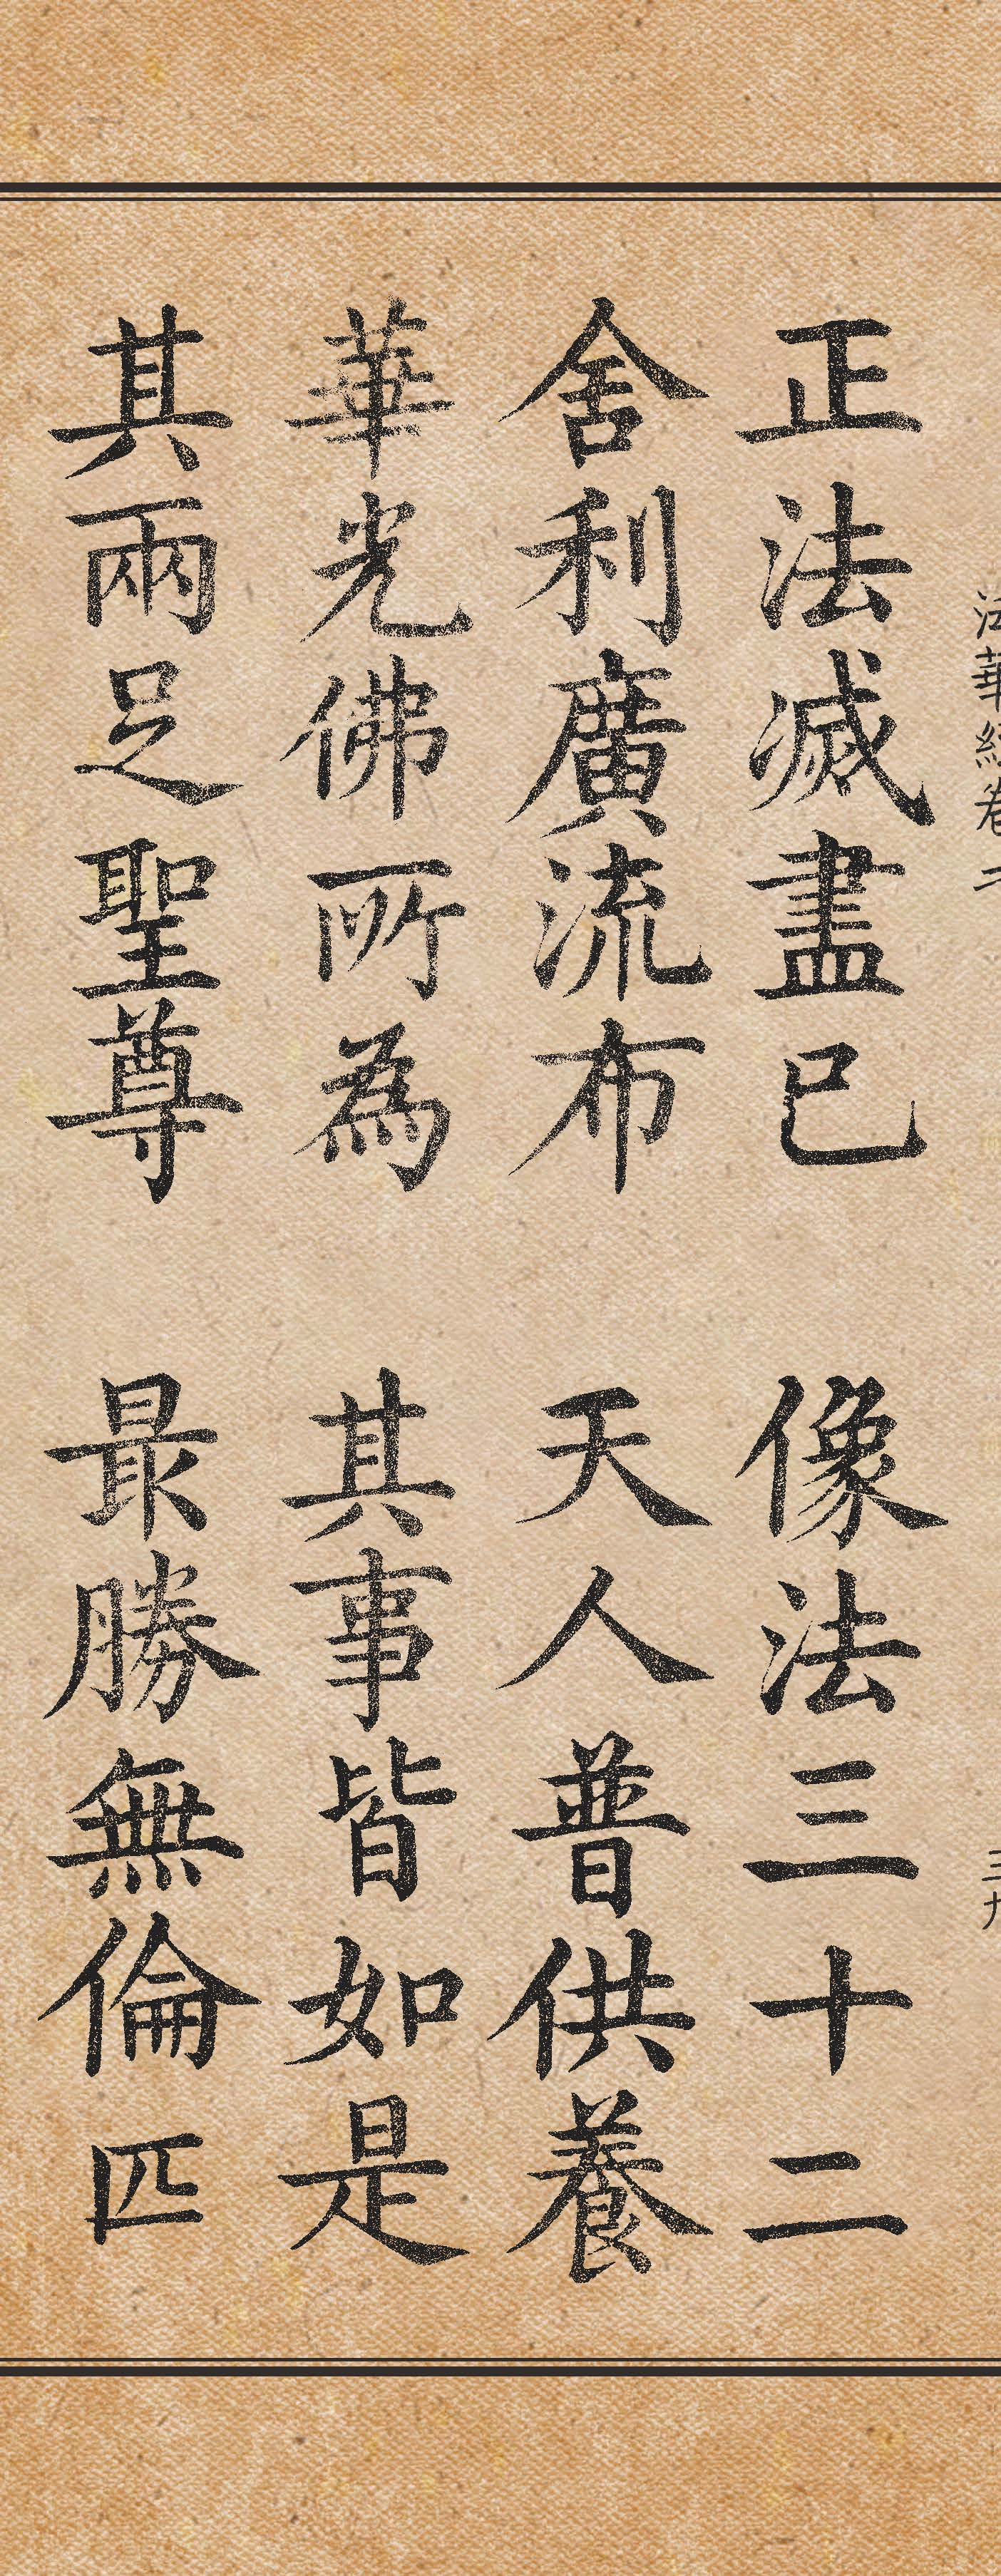 法華經卷二 三九
正法滅盡已 像法三十二
舍利廣流布 天人普供養
華光佛所為 其事皆如是
其兩足聖尊 最勝無倫匹